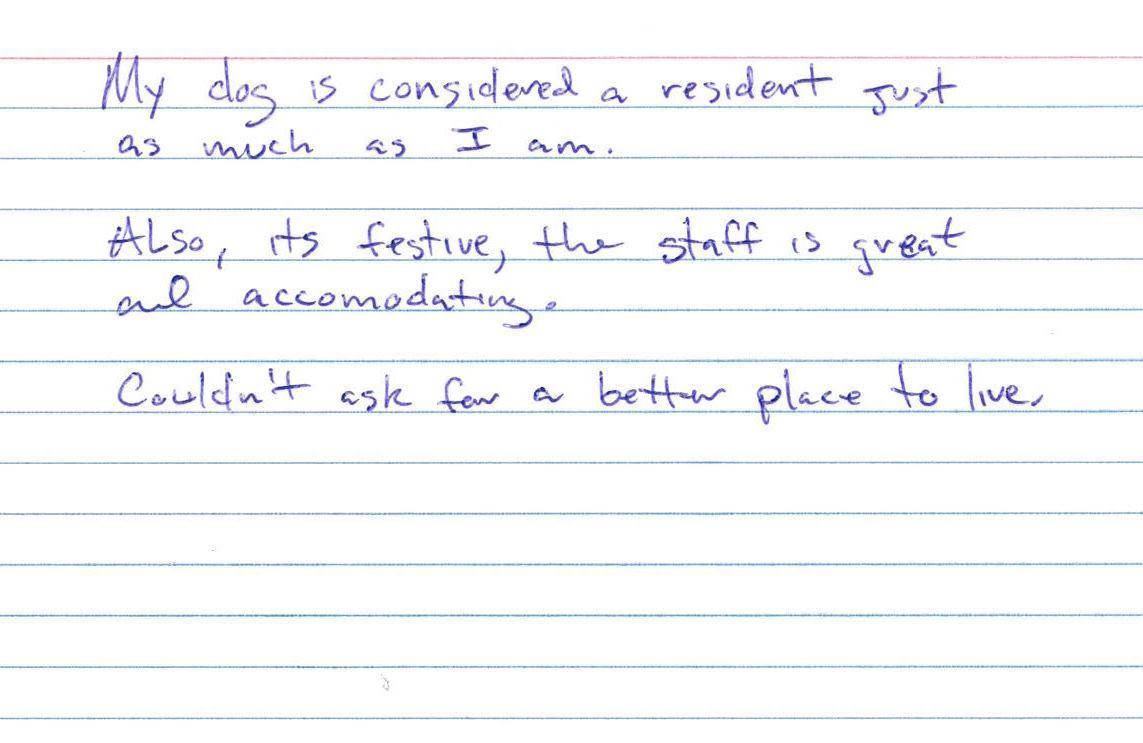 My dog is considered a resident just
as much as I am.
Also, its festive, the staff is great
and accomodating.
Couldn't ask for a better place to live.